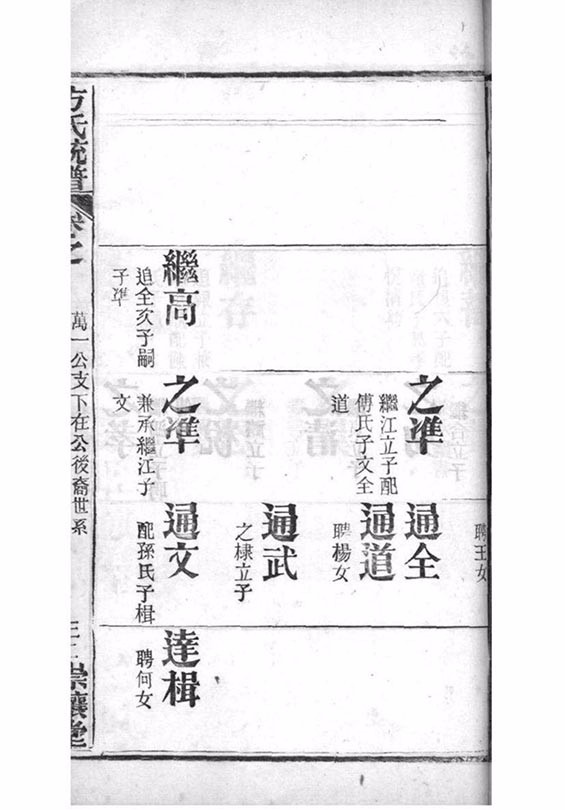 繼高
追全次子嗣
子凖
之凖
繼江立子配
傅氏子文全
道
之凖
兼承繼江子
文
聘王女
通全
通道
聘楊女
通武
之棣立子
通文
配孫氏子楫
達楫
聘何女
方氏統譜
卷之
萬一公支下在公後裔世系
崇讓堂